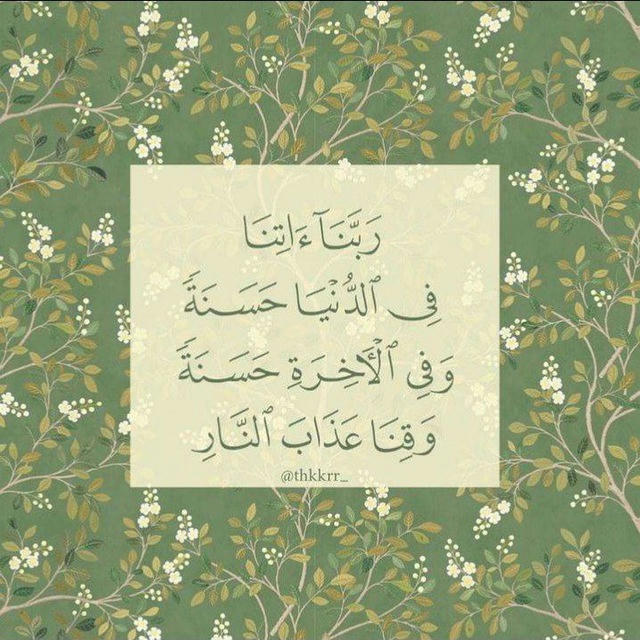 رَبَّنَآ ءَاتِنَا
فِي ٱلدُّنْيَا حَسَنَةً
وَفِي ٱلْأَخِرَةِ حَسَنَةً
وَقِنَا عَذَابَ ٱلنَّارِ
@thkkrr_